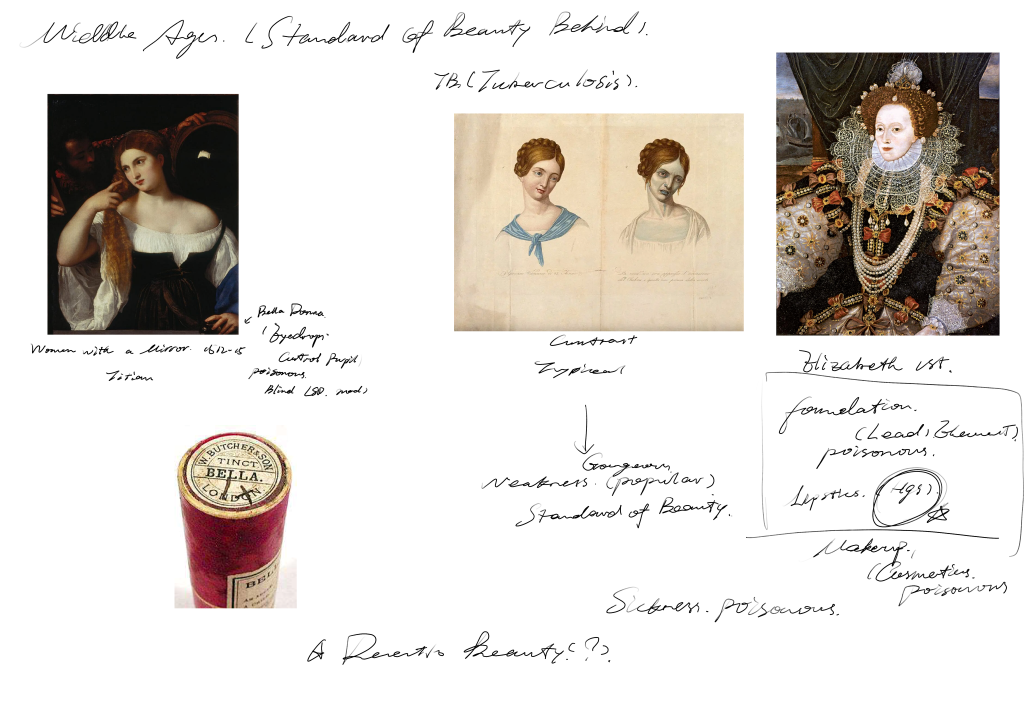 Middle Ages. (Standard of Beauty Behind).
TB. (Tuberculosis).
Bella Donna
(Eyedrop.
Control Pupil,
poisonous.
Blind LSD. mad)
Women with a Mirror. 1512-15
Titian
Contrast
Typical
Weakness. (popular)
Standard of Beauty.
Elizabeth 1st.
foundation.
(Lead, Element)
poisonous.
Lipstics. (HgS).
Makeup.
(Cosmetics.
poisonous
Sickness. poisonous.
Beauty(?).
W. BUTCHER & SON
TINCT
BELLA.
LONDON